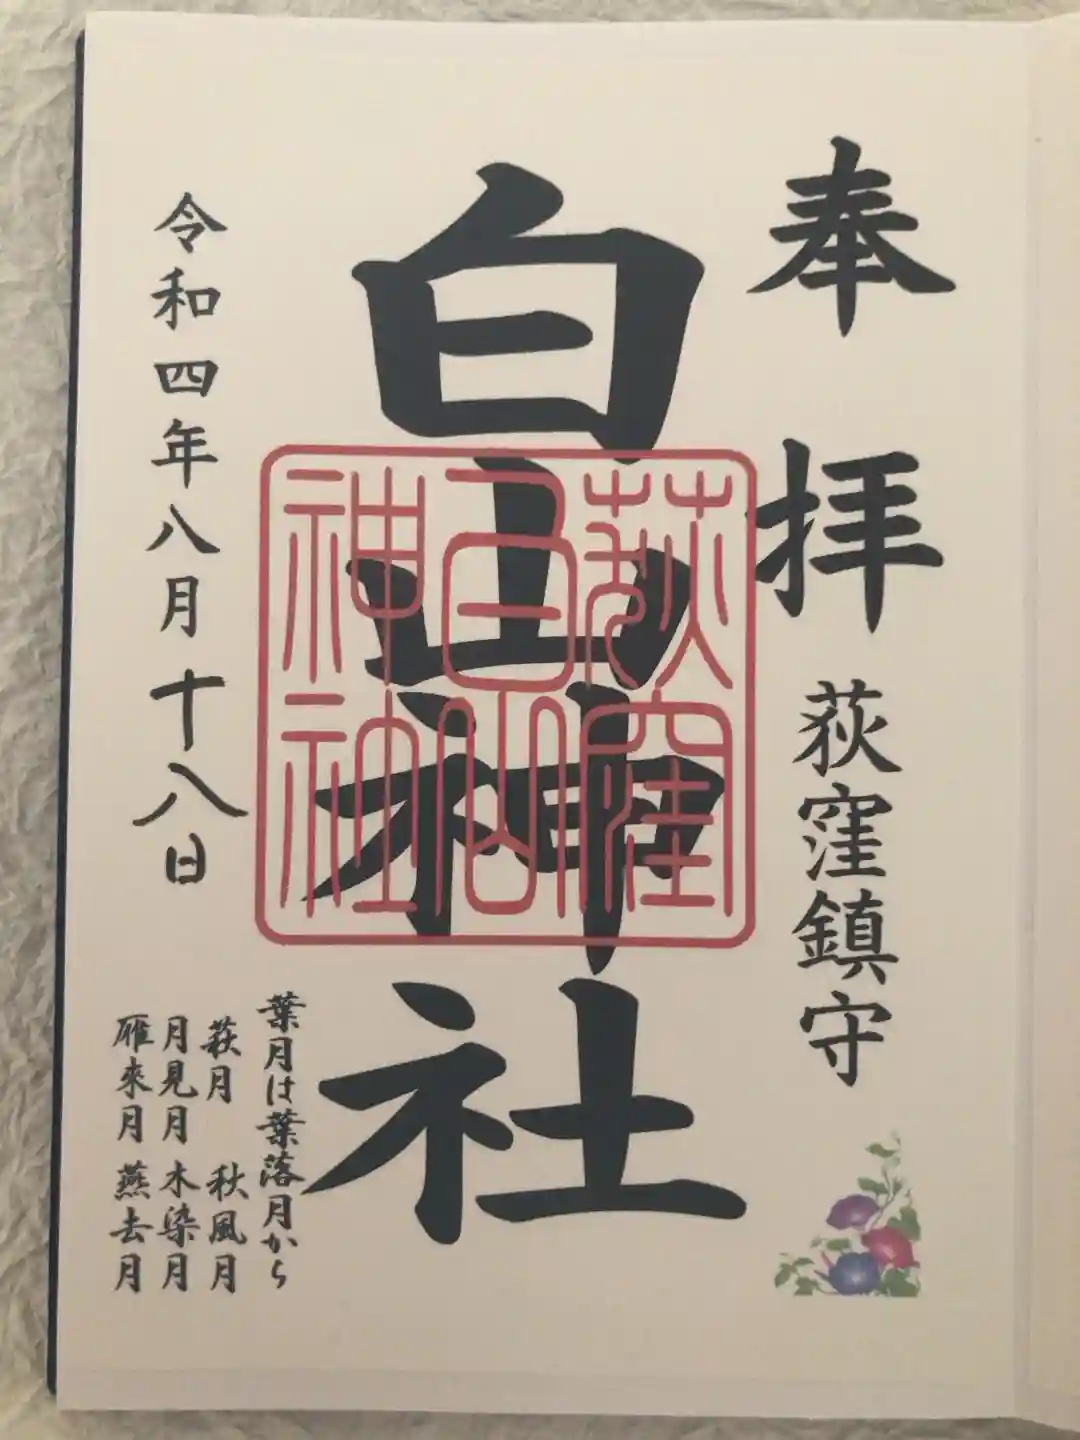 奉拝
荻窪鎮守
白山神社
荻窪
白山
神社
葉月は葉落月から
萩月 秋風月
月見月 木染月
雁來月 燕去月
令和四年八月十八日